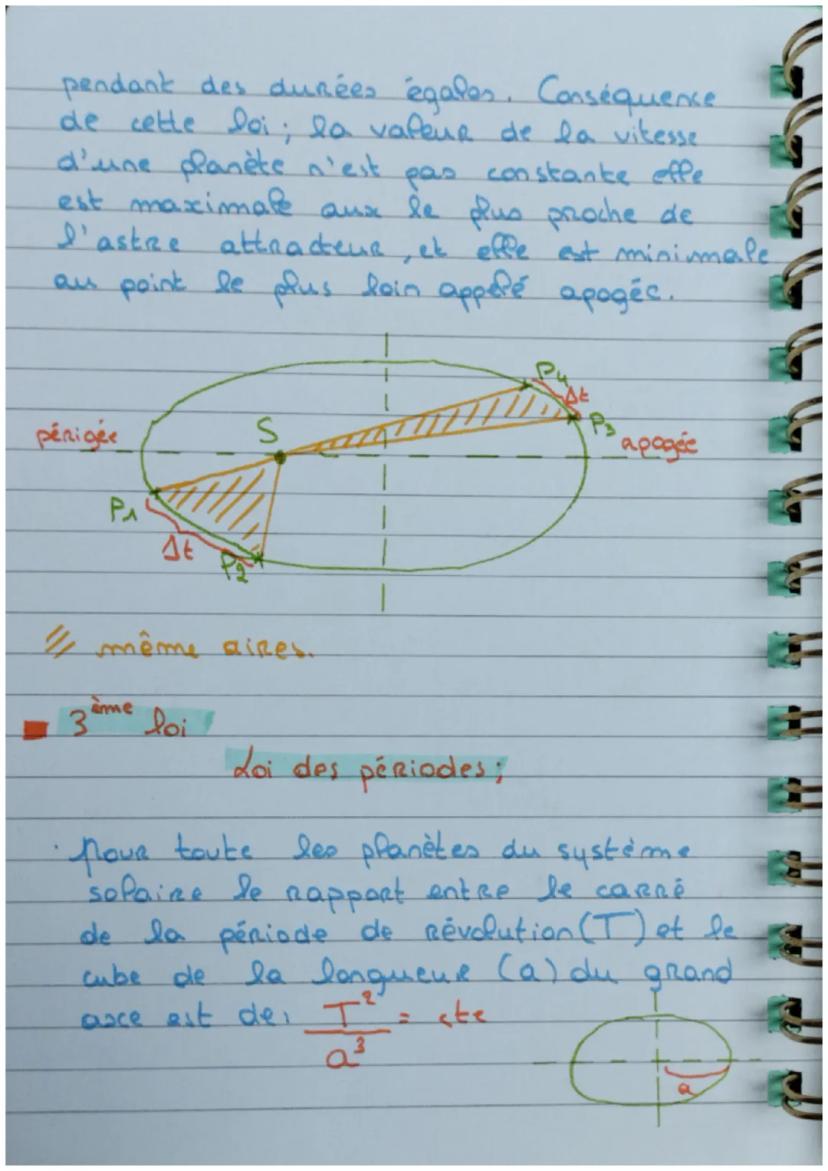 pendant des durées égales. Conséquence
de cette loi; la valeur de la vitesse
d'une planète n'est pas constante elle
est maximale aux le plus proche de
l'astre attracteur, et elle est minimale
au point le plus loin appelé apogée.
P4
Δt
périgée
S
P3
apogée
P1
Δt
P2
même aires.
3ème loi
Loi des périodes;
Pour toute les planètes du système
solaire le rapport entre le carré
de la période de révolution (T) et le
cube de la longueur (a) du grand
axe est de: T²/a³ = cte
a